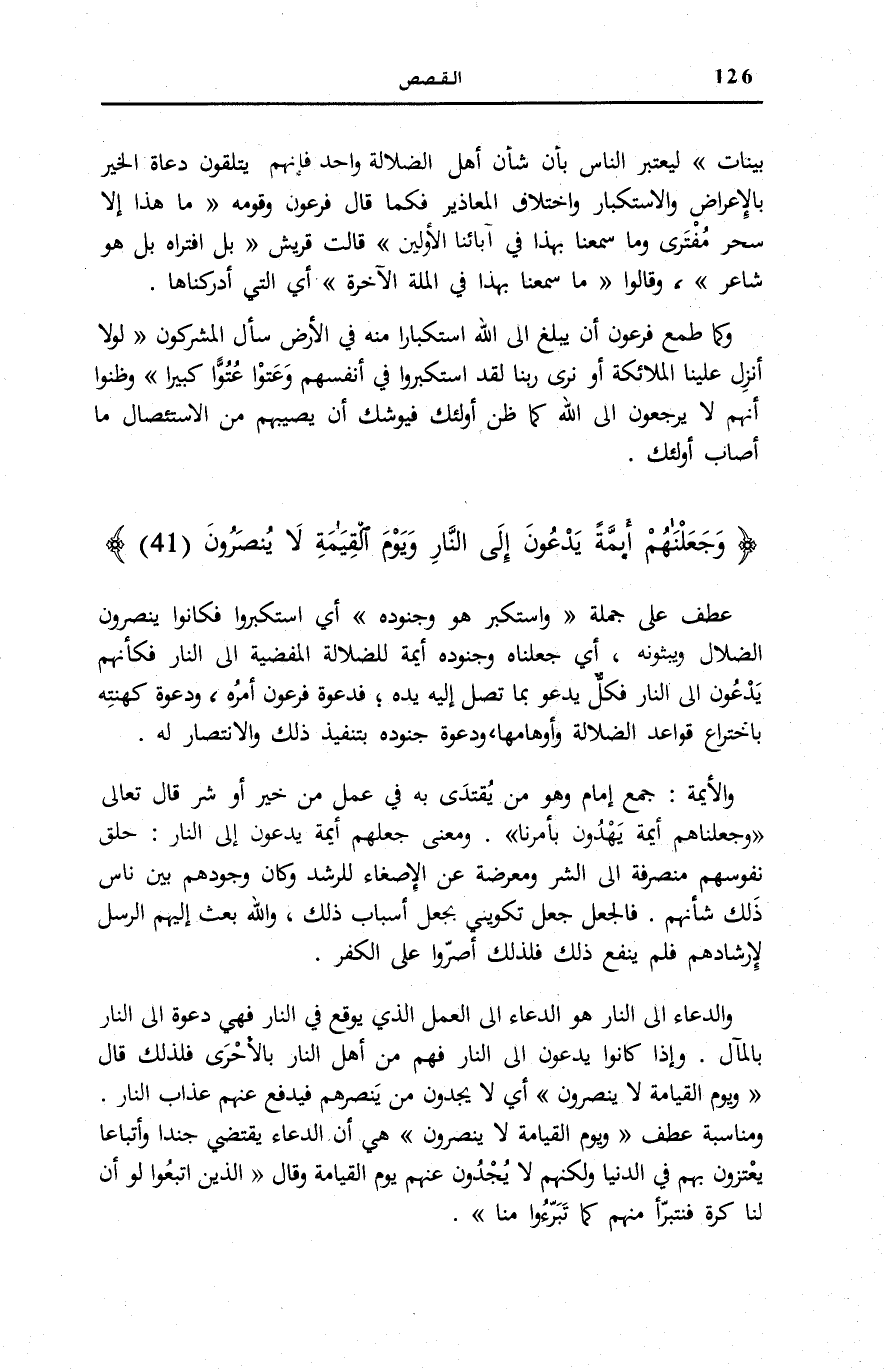 126
القصص
بينات » ليعتبر الناس بأن شأن أهل الضلالة واحد فإنهم يتلقون دعاة الخير
بالإعراض والاستكبار واختلاق المعاذير فكما قال فرعون وقومه « ما هذا إلا
سحر مُفْتَرى وما سمعنا بهذا في آبائنا الأولين » قالت قريش « بل افتراه بل هو
شاعر » ، وقالوا « ما سمعنا بهذا في الملة الآخرة » أي التي أدركناها .
وكما طمع فرعون أن يبلغ الى الله استكبارا منه في الأرض سأل المشركون « لولا
أنزِل علينا الملائكة أو نرى ربنا لقد استكبروا في أنفسهم وَعَتوْا عُتُوًّا كبيرا » وظنوا
أنهم لا يرجعون الى الله كما ظن أولئك فيوشك أن يصيبهم من الاستئصال ما
أصاب أولئك .
﴿ وَجَعَلْنَٰهُمْ أَيِمَّةً يَدْعُونَ إِلَى النَّارِ وَيَوْمَ ٱلْقِيَٰمَةِ لَا يُنصَرُونَ (41) ﴾
عطف على جملة « واستكبر هو وجنوده » أي استكبروا فكانوا ينصرون
الضلال ويبثونه ، أي جعلناه وجنوده أيمة للضلالة المفضية الى النار فكأنهم
يَدْعُون الى النار فكلٌّ يدعو بما تصل إليه يده ؛ فدعوة فرعون أمرُه ، ودعوة كهنتِه
باختراع قواعد الضلالة وأوهامها، ودعوة جنوده بتنفيذ ذلك والانتصار له .
والأيمة : جمع إمام وهو من يُقتدَى به في عمل من خير أو شر قال تعالى
«وجعلناهم أيمة يَهْدُون بأمرنا» . ومعنى جعلهم أيمة يدعون إلى النار : خلق
نفوسهم منصرفة الى الشر ومعرضة عن الإصغاء للرشد وكان وجودهم بين ناس
ذَلك شأنهم . فالجعل جعل تكويني بجعل أسباب ذلك ، والله بعث إليهم الرسل
لإرشادهم فلم ينفع ذلك فلذلك أصرّوا على الكفر .
والدعاء الى النار هو الدعاء الى العمل الذي يوقع في النار فهي دعوة الى النار
بالمآل . وإذا كانوا يدعون الى النار فهم من أهل النار بالأحْرَى فلذلك قال
« ويوم القيامة لا ينصرون » أي لا يجدون من يَنصرهم فيدفع عنهم عذاب النار .
ومناسبة عطف « ويوم القيامة لا ينصرون » هي أن الدعاء يقتضي جندا وأتباعا
يعْتزون بهم في الدنيا ولكنهم لا يُجْدُون عنهم يوم القيامة وقال « الذين اتبعُوا لو أن
لنا كرة فنتبرّأ منهم كما تَبَرّءُوا منا » .